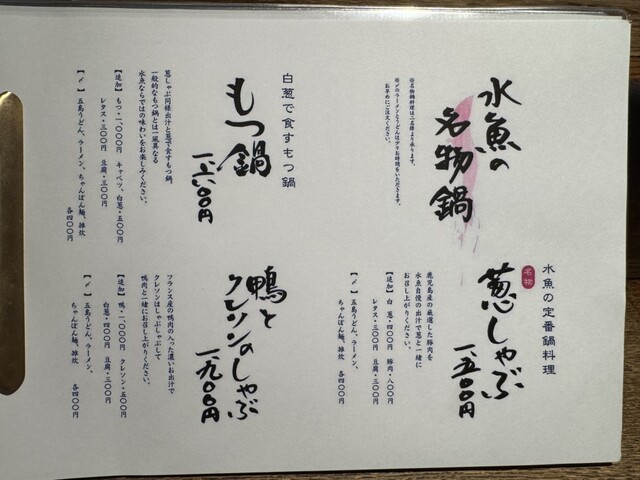 水魚の
名物鍋
※名物鍋料理は二名様より承ります。
お早めにご注文ください。
水魚の定番鍋料理
名物
葱しゃぶ
一、五〇〇円
鹿児島産の厳選した豚肉を
水魚自慢の出汁で葱と一緒に
お召し上がりください。
【追加】白葱・四〇〇円 豚肉・八〇〇円
レタス・三〇〇円 豆腐・三〇〇円
【〆】五島うどん、ラーメン、
ちゃんぽん麺、雑炊 各四〇〇円
白葱で食すもつ鍋
もつ鍋
一、六〇〇円
葱しゃぶ同様出汁と葱で食すもつ鍋。
一般的なもつ鍋とは一風異なる
水魚ならではの味わいをお楽しみください。
【追加】もつ・一、〇〇〇円 キャベツ、白葱・五〇〇円
レタス・三〇〇円 豆腐・三〇〇円
【〆】五島うどん、ラーメン、ちゃんぽん麺、雑炊
各四〇〇円
鴨と
クレソンのしゃぶ
一、九〇〇円
フランス産の鴨肉の入った濃いお出汁で
クレソンはしゃぶしゃぶして
鴨肉と一緒にお召し上がりください。
【追加】鴨・一、〇〇〇円 クレソン・五〇〇円
白葱・四〇〇円 豆腐・三〇〇円
【〆】五島うどん、ラーメン、
ちゃんぽん麺、雑炊 各四〇〇円